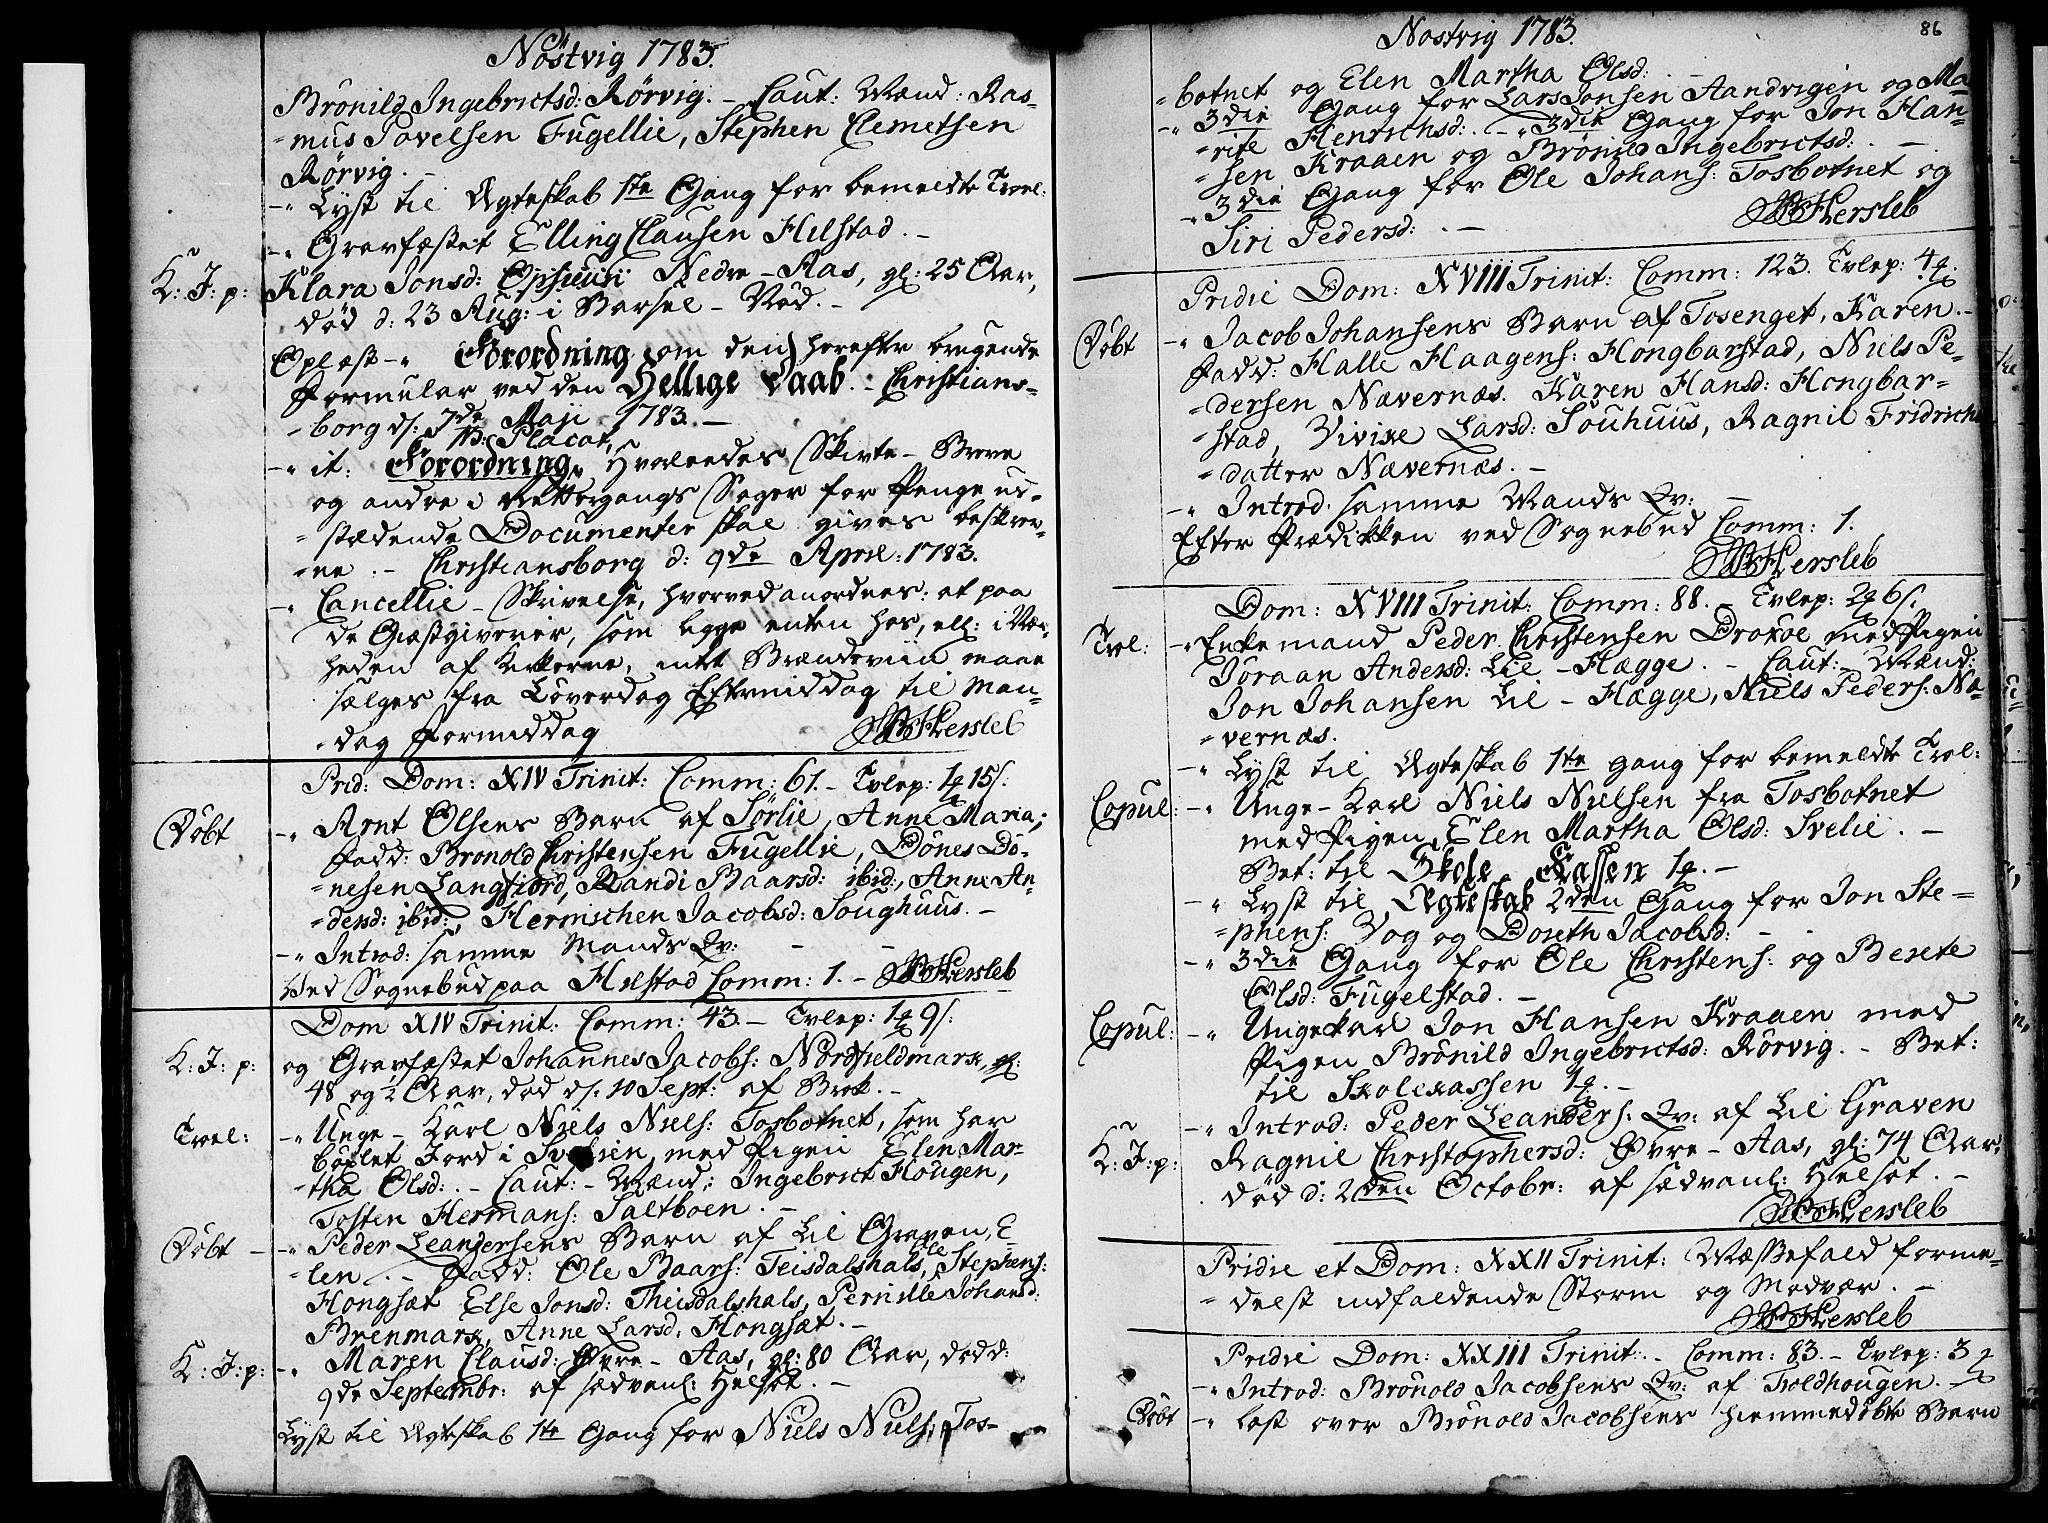 Nöstvig 1783.
Brönild Ingebrictsd: Rörvig. – Caut: Mænd: Ras-
-mus Povelsen Fugellie, Stephen Clemetsen
Rörvig. –
–" Lyst til Ægteskab 1ste Gang for bemeldte Trol:
–" Gravfæstet Elling Clausen Hilstad. –
K: J: p: Klara Jonsd: Opsuus: Nedre-Aas, gl: 25 Aar,
död d: 23 Aug: i Barsel-Nöd. –
Oplæst –" Forordning om den herefter brugende
Formular ved den Hellige Daab. – Christians-
-borg d: 7de Maji 1783. –
Placat,
–" it: Forordning, Hvorledes Skifte-Breve
og andre i Rettergangs Sager for Penge ud-
-stædende Documenter skal gives beskrev-
-ne. – Christiansborg d: 9de April: 1783.
–" Cancellie-Skrivelse, hvorved anordnes: at paa
de Giæstgiverier, som ligge enten hos, ell: i Nær-
heden af Kirkerne, intet Brændeviin maae
sælges fra Löverdag Eftermiddag til Man-
-dag Formiddag HPHersleb
Prid: Dom: XIV Trinit: Comm: 61. – Tvlep: 1 15/.
Döbt –" Arnt Olsens Barn af Sörlie, Anne Maria;
Fadd: Bronold Christensen Fugellie, Dönes Dö-
-nesen Langfiord, Randi Baarsd: ibid:, Anne An-
-dersd: ibid:, Hermichen Jacobsd: Soughuus. –
–" Introd: samme Mands Qv: –
Ved Sognebud paa Hilstad Comm: 1. – HPHersleb
Dom XIV Trinit: Comm: 43. – Tvlep: 1 9/.
K: J: p: og Gravfæstet Johannes Jacobs: Nordfieldmark, gl:
48 og ½ Aar, död d: 10 Sept: af Brok. –
Trol: –" Unge-Karl Niels Niels: Tosbotnet, som har
böxlet Jord i Svelien, med Pigen Elen Mar-
-tha Olsd: . – Caut:-Mænd: Ingebrict Hougen,
Tosten Hermans: Saltboen. –
Döbt – –" Peder Leandersens Barn af Lil Graven, E-
-len. – Fadd: Ole Baars: Teisdalshals, Ole Stephens:
Hongsæt Else Jonsd: Theisdalshals, Pernille Johansd:
Brenmark, Anne Larsd: Hongsæt. –
K: J: p: –" Maren Clausd: Övre-Aas, gl: 80 Aar, död d:
9de Septembr: af sædvanl: Helsot. –
Lyst til Ægteskab 1ste Gang for Niels Niels: Tos-
Nöstvig 1783.
86
-botnet og Elen Martha Olsd: –
–" 3die Gang for Lars Jonsen Aandvigen og Ma-
-rite Henrichsd: . –" 3die Gang for Jon Han-
-sen Kraaen og Brönild Ingebrictsd: . –
–" 3die Gang for Ole Johans: Tosbotnet og
Siri Pedersd: . – HPHersleb
Pridie Dom: XVIII Trinit: Comm: 123. Tvlep: 4
Döbt –" Jacob Johansens Barn af Tosenget, Karen. –
Fadd: Halle Haagens: Hongbarstad, Niels Pe-
-dersen Nævernæs. Karen Hansd: Hongbar-
-stad, Vivike Larsd: Souhuus, Ragnil Fridrichs
-datter Nævernæs. –
–" Introd: samme Mands Qv: –
Efter Prædikken ved Sognebud Comm: 1.
HPHersleb
Dom: XVIII Trinit: Comm: 88. – Tvlep: 2 6/.
Trol: –" Enkemand Peder Christensen Droxöe med Pigen
Joraan Andersd: Lil-Hægge. – Caut:-Mænd:
Jon Johansen Lil-Hægge, Niels Peders: Næ-
-vernæs.
–" Lyst til Ægteskab 1ste gang for bemeldte Trol:
Copul: –" Unge-Karl Niels Nielsen fra Tosbotnet
med Pigen Elen Martha Olsd: Svelie. –
Bet: til Skole Kassen 1 –
–" Lyst til Ægteskab 2den Gang for Jon Ste-
-phens: Vog og Doreth Jacobsd: –
–" 3die Gang for Ole Christens: og Berete
Olsd: Fugelstad. –
Copul: –" Ungekarl Jon Hansen Kraaen med
Pigen Brönild Ingebrictsd: Rörvig. – Bet:
til Skolekassen 1 –
–" Introd: Peder Leanders: Qv: af Lil Graven
K: J: p: Ragnil Christophersd: Övre-Aas, gl: 74 Aar,
död d: 2den Octobr: af sædvanl: Helsot. –
HPHersleb
Pridie et Dom: XXII Trinit: Mæssefald forme-
-delst indfaldende Storm og Modvær. –
HPHersleb
Pridie Dom: XXIII Trinit: – Comm: 83. – Tvlep: 3
–" Introd: Brönold Jacobsens Qv: af Foldhougen. –
Döbt –" læst over Brönold Jacobsens hiemmedöbte Barn